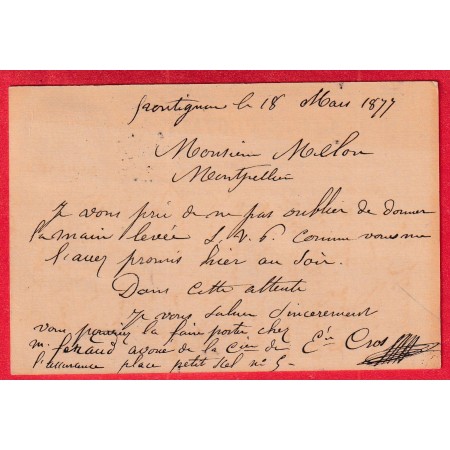 Frontignan le 18 Mars 1877
Monsieur Melon
Montpellier
Je vous prie de ne pas oublier de donner
la main levée S. V. P. comme vous me
l'avez promis hier au soir.
Dans cette attente
Je vous salue sincerement
vous pourriez la faire porter chez Cros
m. agent de la Cie de
l'assurance place petit Scel nº 5-